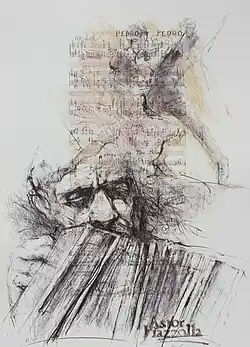 PEDRO Y PEDRO
Astor
Piazzolla